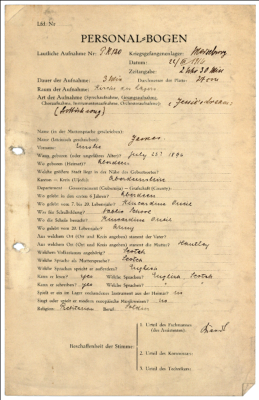 Lfd. Nr.
PERSONAL-BOGEN
Lautliche Aufnahme Nr.: PK 120 Kriegsgefangenenlager:
Datum:
Zeitangabe: 2 Uhr 30 Min
Dauer der Aufnahme: 3 Min Durchmesser der Platte:
Raum der Aufnahme:
Art der Aufnahme (Sprechaufnahme, Gesangsaufnahme,
Choraufnahme, Instrumentenaufnahme, Orchesteraufnahme):
Name (in der Muttersprache geschrieben):
Name (lateinisch geschrieben):
Vorname:
Wann geboren (oder ungefähres Alter)? July 1894
Wo geboren (Heimat)? Aberdeen
Welche größere Stadt liegt in der Nähe des Geburtsortes?
Kanton — Kreis (Ujedz): Aberdeenshire
Department — Gouvernement (Gubernija) — Grafschaft (County):
Wo gelebt in den ersten 6 Jahren? Aberdeen
Wo gelebt vom 7. bis 20. Lebensjahr? Kincardine
Was für Schulbildung? Public School
Wo die Schule besucht? Kincardine
Wo gelebt vom 20. Lebensjahr? Army
Aus welchem Ort (Ort und Kreis angeben) stammt der Vater?
Aus welchem Ort (Ort und Kreis angeben) stammt die Mutter? Huntley
Welchem Volksstamm angehörig? Scotch
Welche Sprache als Muttersprache? Scotch
Welche Sprachen spricht er außerdem? English
Kann er lesen? yes Welche Sprachen? English Scotch
Kann er schreiben? yes Welche Sprachen? English Scotch
Spielt er ein im Lager vorhandenes Instrument aus der Heimat? no
Singt oder spielt er modern europäische Musikweisen? no
Religion: Beruf: Soldier
Beschaffenheit der Stimme:
1. Urteil des Fachmannes
(des Assistenten):
2. Urteil des Kommissars:
3. Urteil des Technikers: